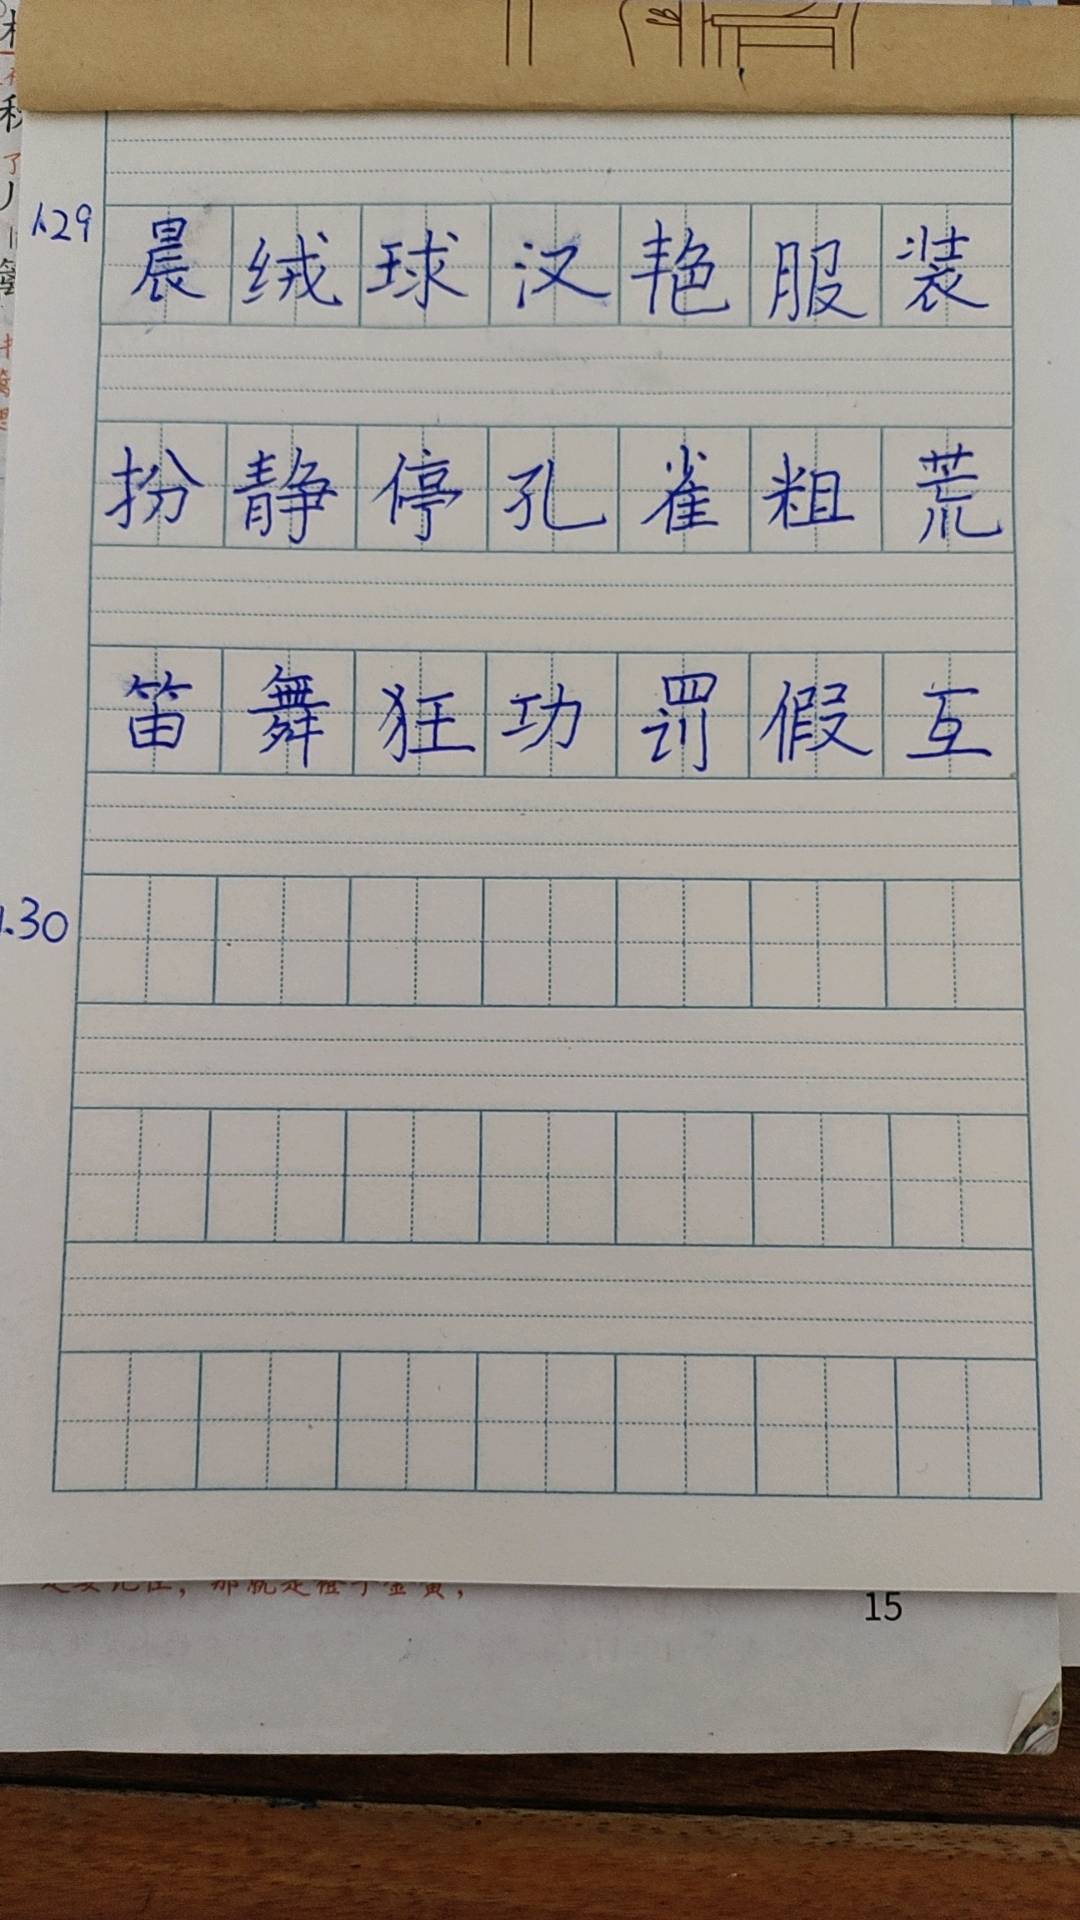 1.29
晨绒球汉艳服装
扮静停孔雀粗荒
笛舞狂功罚假互
1.30
15